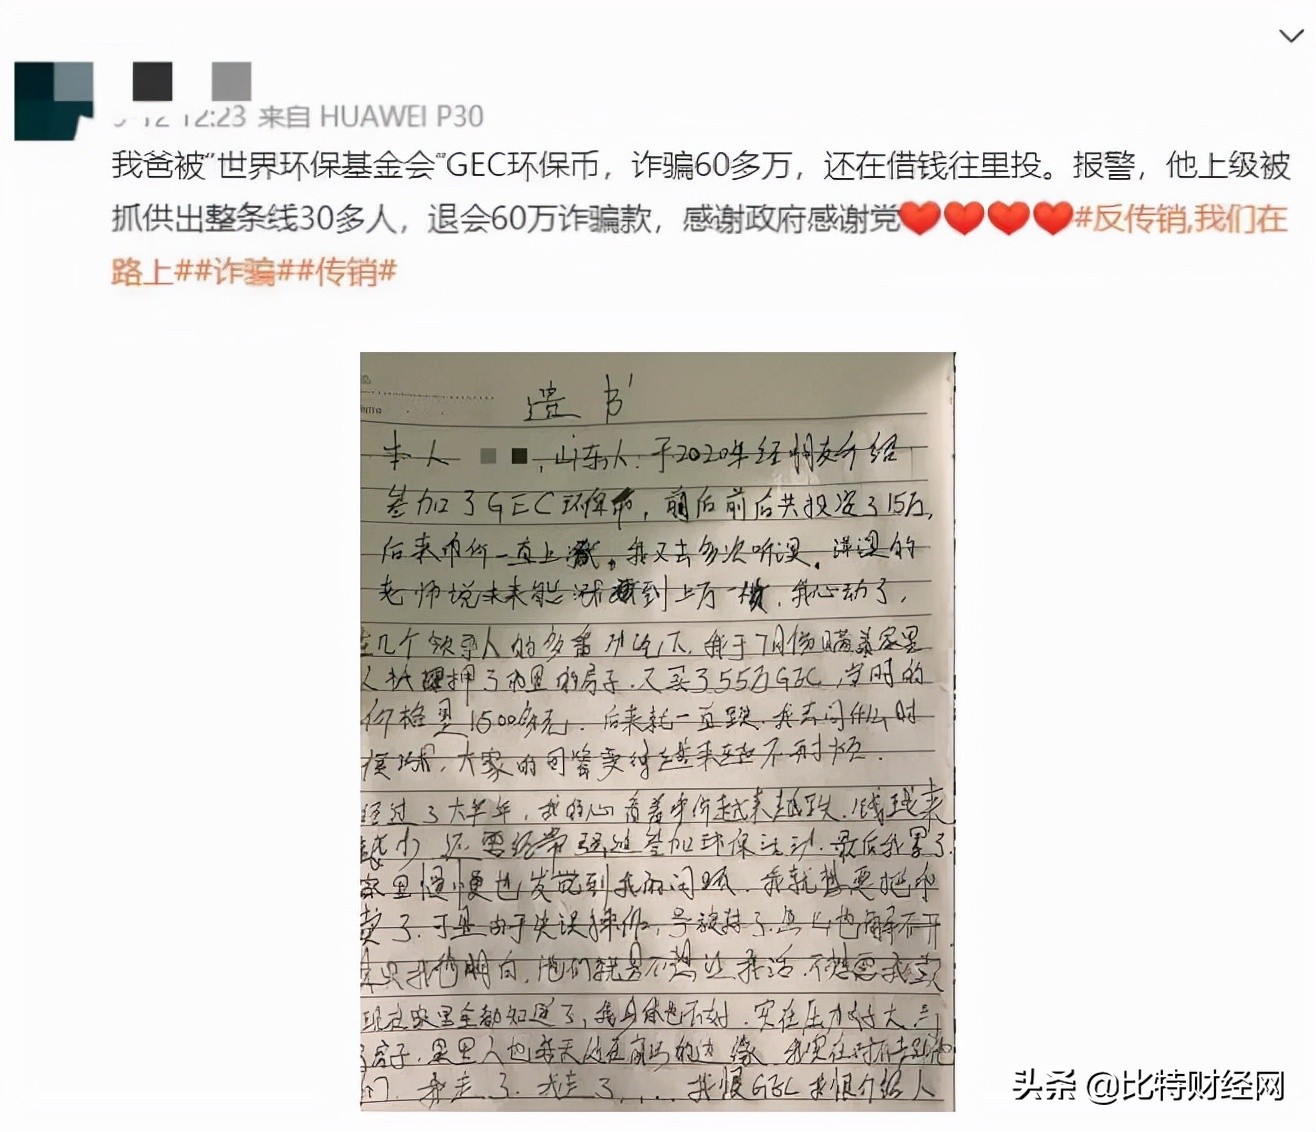 12:23 来自 HUAWEI P30
我爸被"世界环保基金会"GEC环保币，诈骗60多万，还在借钱往里投。报警，他上级被
抓供出整条线30多人，退会60万诈骗款，感谢政府感谢党❤❤❤❤#反传销,我们在
路上##诈骗##传销#
遗书
本人 ，山东人.于2020年经朋友介绍
参加了GEC环保币，前后共投资了15万,
后来币价一直上涨,我又去多次听课.讲课的
老师说未来能涨到上万一枚,我心动了,
几个领导人的多番劝论下,我于7月份瞒着家里
人抵押了家里的房子.又买了55万GEC,当时的
价格是1500多元,后来就一直跌.我去问什么时
候涨,大家的回答变得越来越不耐烦.
经过了大半年,我的心看着币价越来越跌.钱越来
越少 还要经常强迫参加环保活动.最后我累了.
家里慢慢也发觉到我的问题.我就想要把币
卖了.可是由于失误操作,号被封了.怎么也解不开
他们就是不想让我活,不想要我卖
现在家里全都知道了,我身体也不好.实在压力好大
房子.家里人也每天处在崩溃的边缘 我实在对不起他
们.我走了.我走了....我恨GEC我恨介绍人
头条 @比特财经网